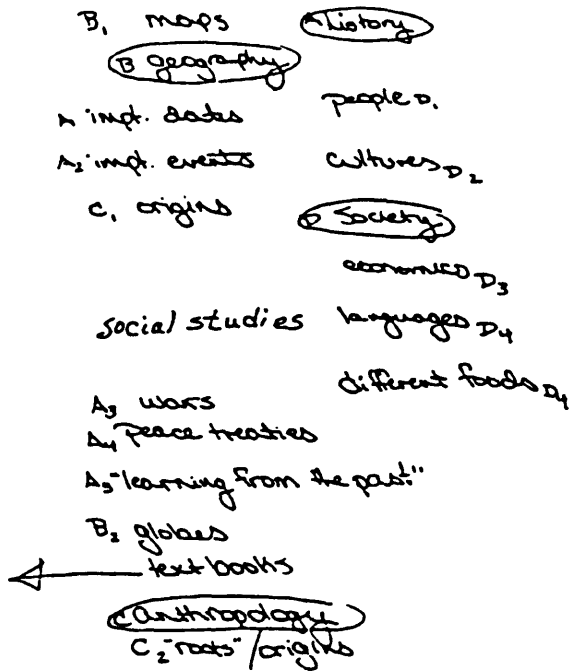 B1 maps
A history
B geography
people D1
A impt. dates
A2 impt. events
cultures D2
C1 origins
D Society
economics D3
social studies
languages D4
different foods D4
A3 wars
A4 Peace treaties
A5 "learning from the past"
B2 globes
text books
C anthropology
C2 "roots"/origins